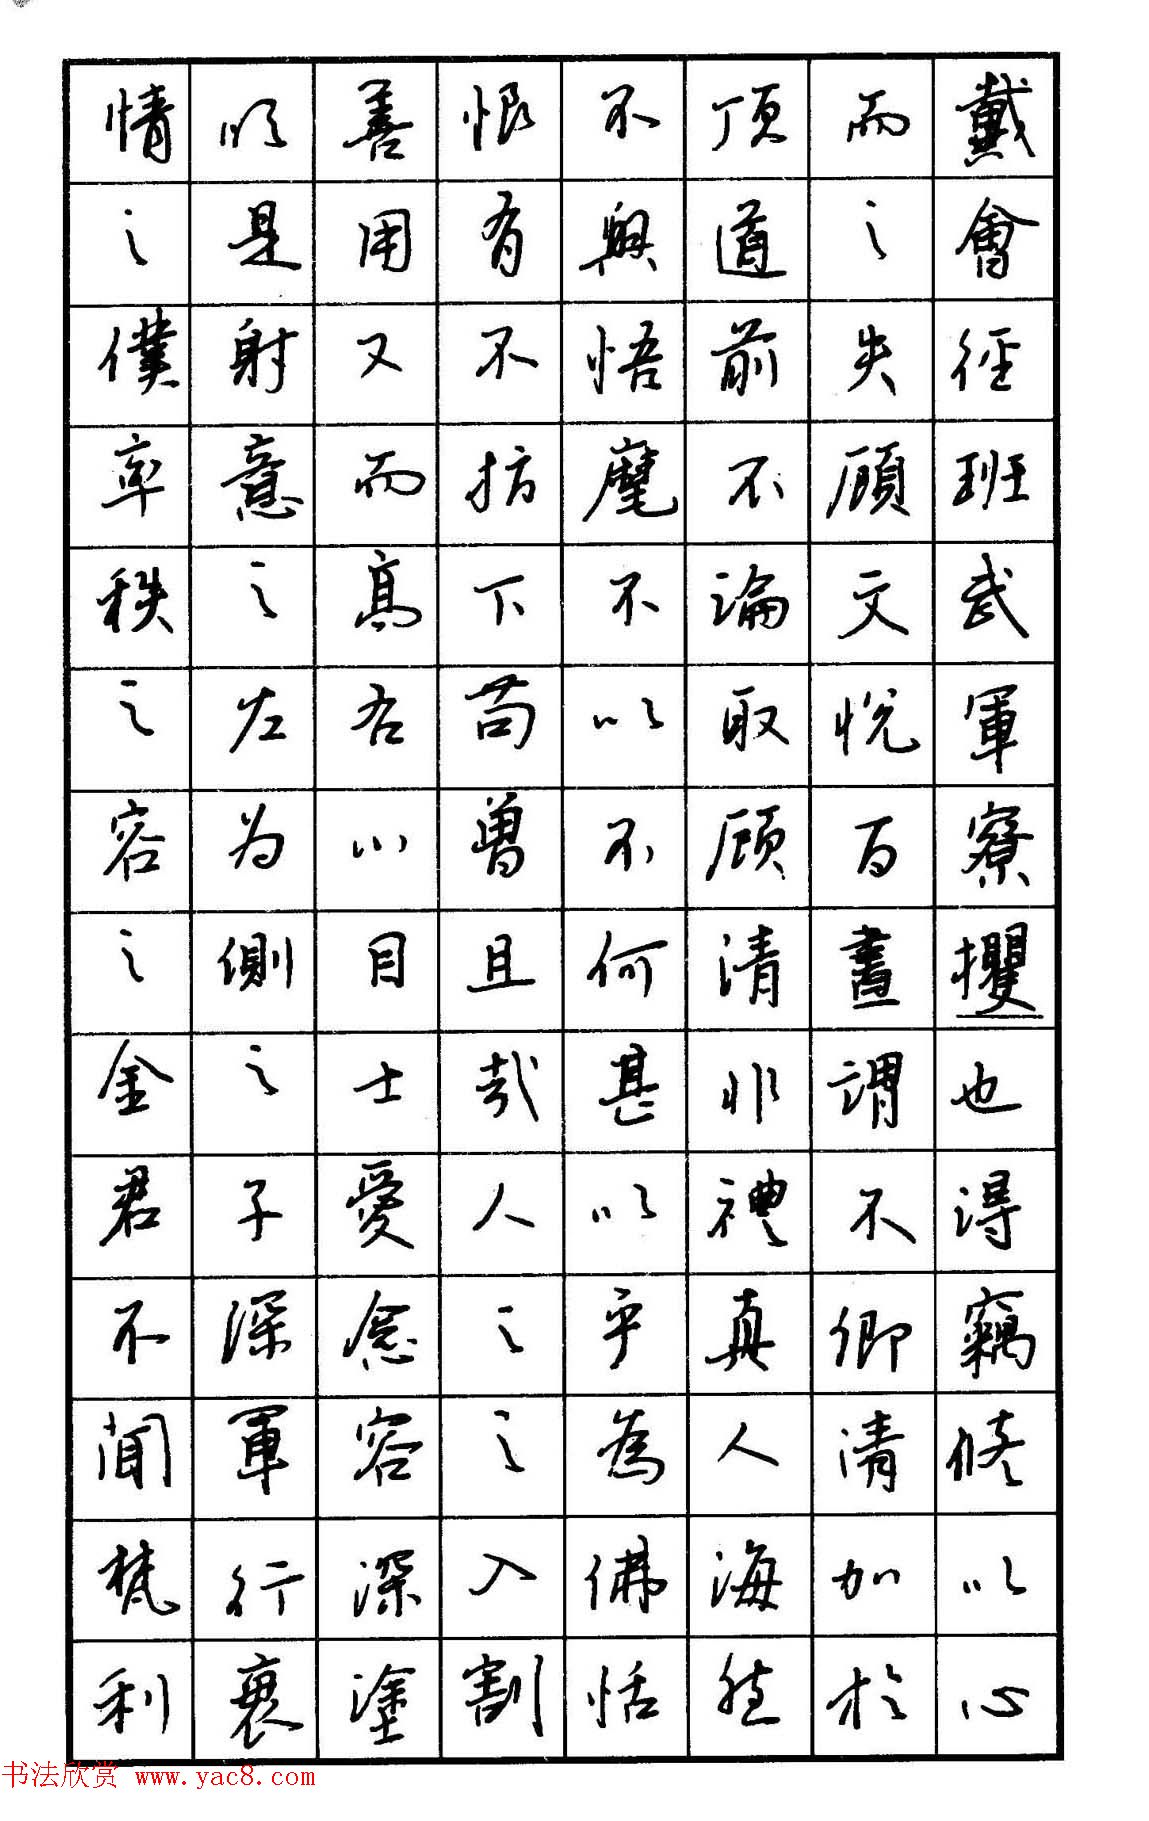 情欣喜恨不頂而戴
之是用有興道之會
僕射又不悟前失徑
率意而指麾不顧班
秩之高下不論文武
之左右苟以取悅軍
容为心曾不顧百寮
之側目且何清晝攫
金之士哉甚非謂也
君子愛人以禮不得
不深念之乎真卿竊
聞軍容之為人清修
梵行深入佛海加以
利衰塗割恬然於心
书法欣赏 www.yac8.com